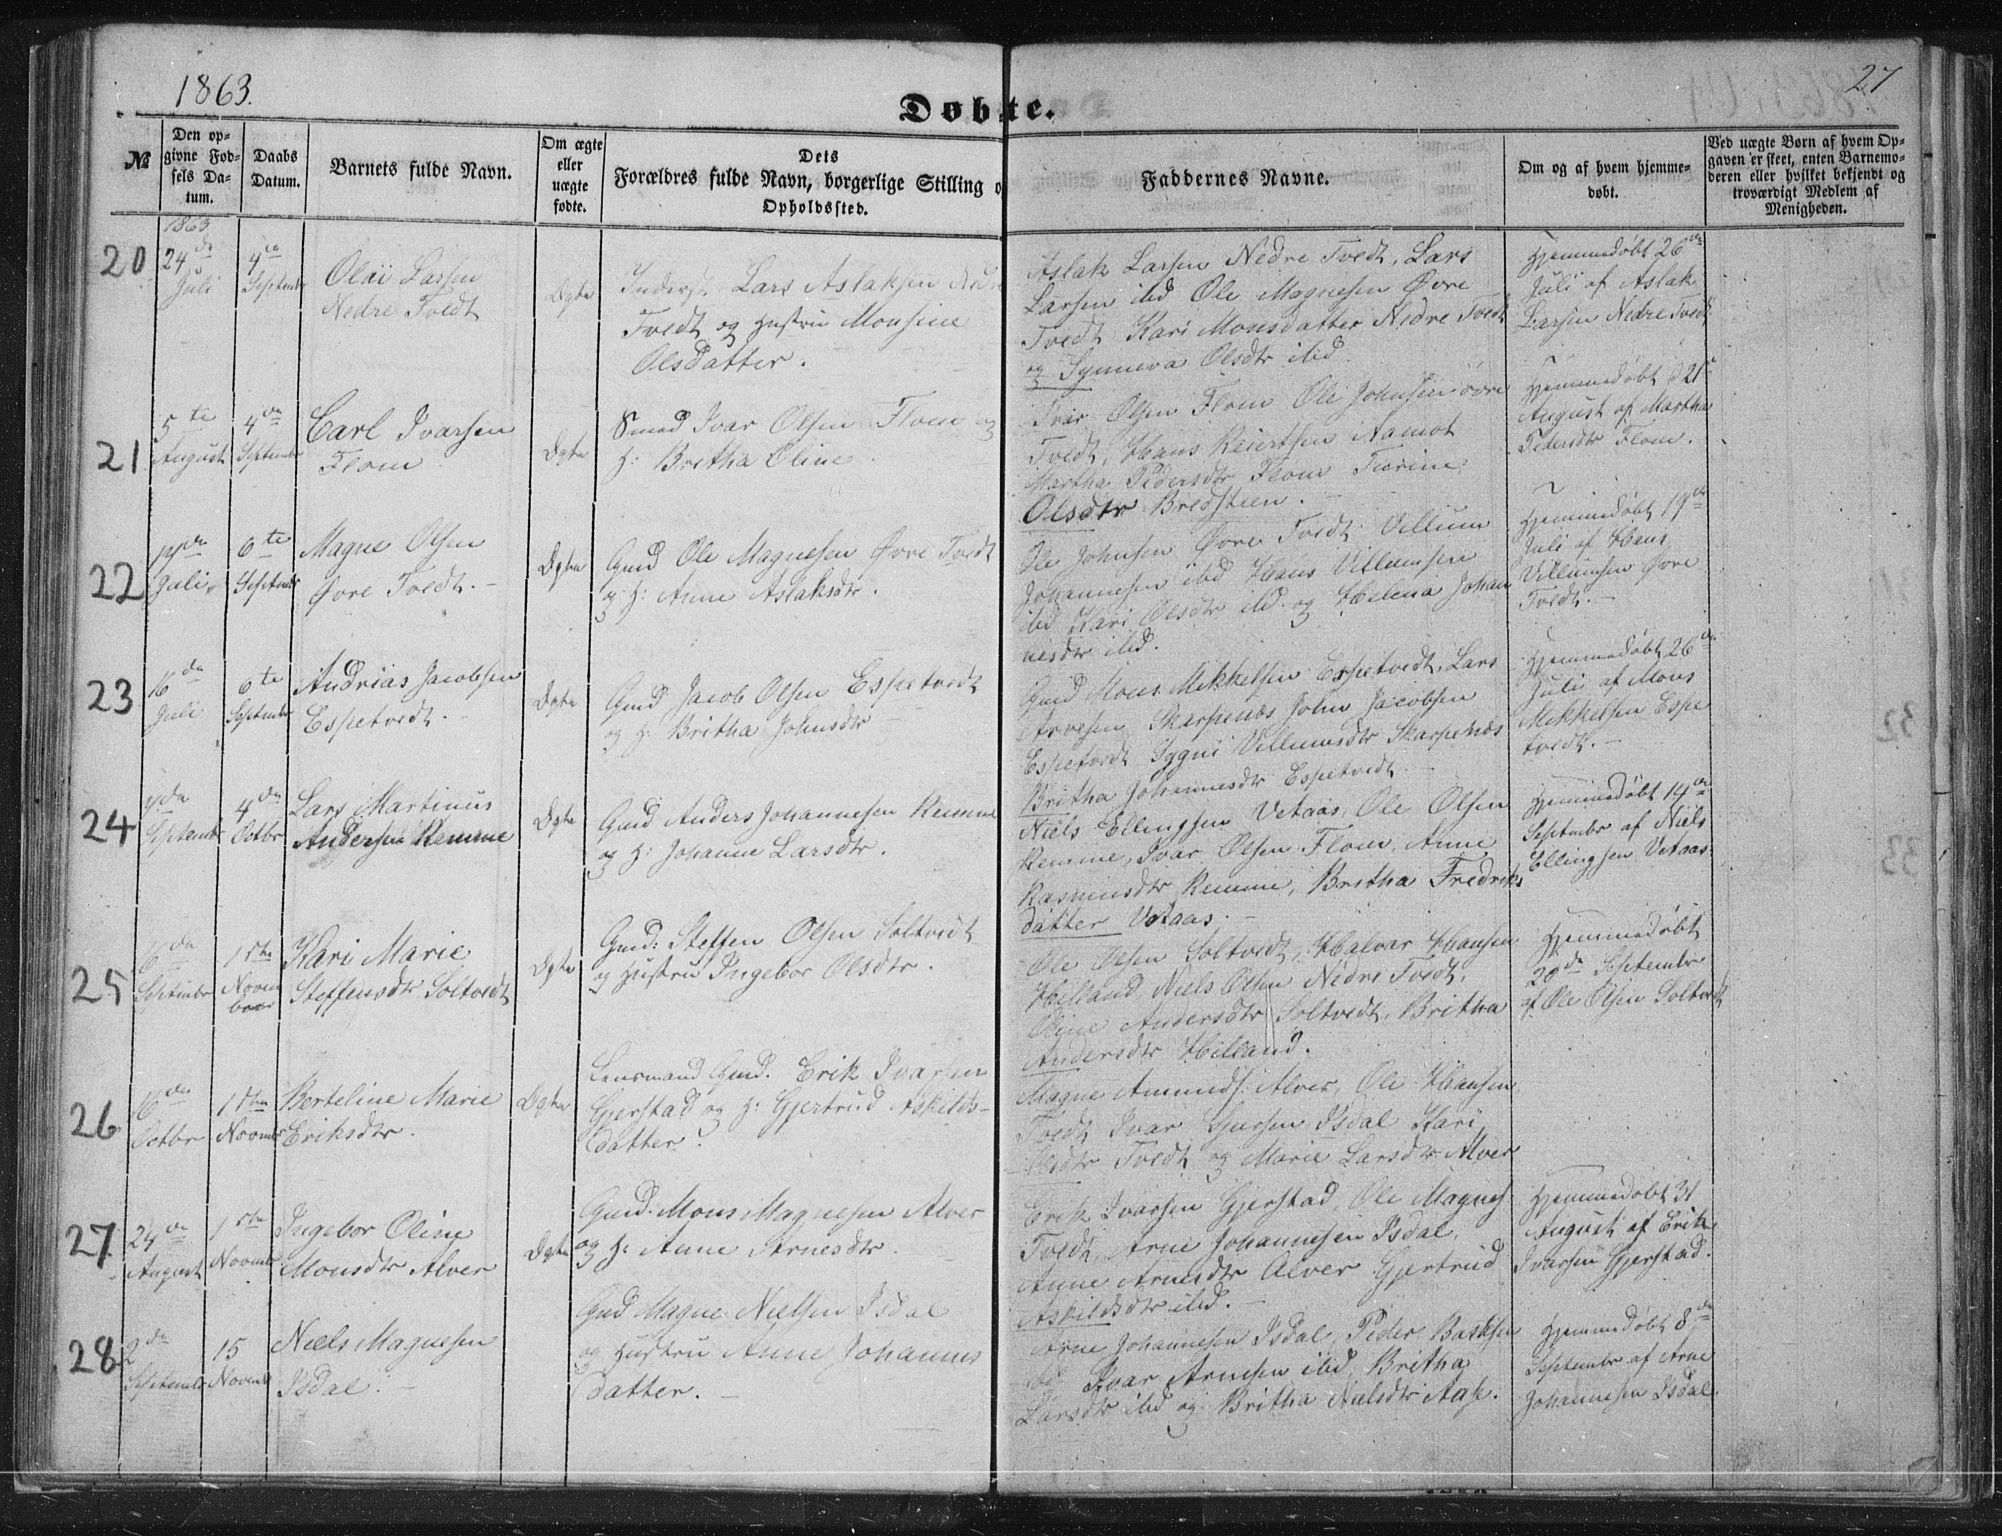 1863.
27
Døbte.
№
Den op-
givne Fød-
sels Da-
tum.
Daabs
Datum.
Barnets fulde Navn.
Om ægte
eller
uægte
fødte.
Dets
Forældres fulde Navn, borgerlige Stilling o
Opholdssted.
Faddernes Navne.
Om og af hvem hjemme-
døbt.
Ved uægte Børn af hvem Op-
gaven er skeet, enten Barnemo-
deren eller hvilket bekjendt og
troværdigt Medlem af
Menigheden.
20
1863
24de
Juli
4de
Septembr
Olai Larsen
Nedre Tvedt
Ægte
Inderst. Lars Aslaksen
Tvedt og Hustru Monsine
Olsdatter.
Aslak Larsen Nedre Tvedt, Lars
Larsen ibid Ole Magnesen Øvre
Tvedt Kari Monsdatter Nedre Tvedt
og Synneva Olsdtr ibid.
Hjemmedøbt 26de
Juli af Aslak
Larsen Nedre Tvedt
21
5te
August
4de
Septembr
Carl Ivarsen
Flom
Ægte
Smed Ivar Olsen Flom og
H: Britha Oline.
Ivar Olsen Flom Ole Johnsen øvre
Tvedt, Hans Reiertsen Aamot
Martha Pedersdtr Flom
Olsdtr Bredsteen.
Hjemmedøbt 21
August af Martha
Pedersdtr Flom.
22
Juli
6te
Septembr
Magne Olsen
Øvre Tvedt.
Ægte
Gmd Ole Magnesen Øvre Tvedt
og H: Anne Aslaksdtr.
Ole Johnsen Øvre Tvedt Villum
Johannesen ibid Hans Villumsen
ibid Kari Olsdtr ibid. og Helena Johan
nesdtr ibid.
Hjemmedøbt 19de
Juli af Hans
Villumsen Øvre
Tvedt.
23
16de
Juli
6te
Septembr
Andrias Jacobsen
Espetvedt.
Ægte
Gmd Jacob Olsen Espetvedt
og H: Britha Johnsdtr
Gmd Mons Mikkelsen Espetvedt, Lars
Arnesen Skarpenæs John Jacobsen
Espetvedt, Sygni Villumsdtr Skarpenæs
Britha Johannesdtr Espetvedt.
Hjemmedøbt 26de
Juli af Mons
Mikkelsen Espe
tvedt.
24
Septembr
4de
Octbr
Lars Martinus
Andersen Remme
Ægte
Gmd Anders Johannesen Remme
og H: Johanne Larsdtr.
Niels Ellingsen Vetaas, Ole Olsen
Remme, Ivar Olsen Flom, Anne
Rasmusdtr Remme, Britha Fredriks
datter Vetaas.
Hjemmedøbt 14de
Septembr af Niels
Ellingsen Vetaas.
25
6de
Septembr
1ste
Novem
ber
Kari Marie
Steffensdtr Soltvedt
Ægte
Gmd: Steffen Olsen Soltvedt
og Hustru Ingebor Olsdtr.
Ole Olsen Soltvedt, Halvar Hansen
Helland, Niels Olsen Nedre Tvedt.
Oline Andersdtr Soltvedt, Britha
Andersdtr Hilland.
Hjemmedøbt
20de Septembr
af Ole Olsen Soltvedt
26
16de
Octbr
1ste
Novmbr
Berteline Marie
Eriksdtr.
Ægte
Lensmand Gmd. Erik Ivarsen
Gjerstad og H: Gjertrud Askilds-
datter.
Magne Amunds. Alver, Ole Hansen
Tvedt Ivar Isdal Kari
Olsdtr Tvedt og Marie Larsdtr Alver
27
24de
August
1ste
Novmbr
Ingebor Oline
Monsdtr Alver
Ægte
Gmd. Mons Magnesen Alver
og H: Anne Arnesdtr.
Erik Ivarsen Gjerstad, Ole Magnes
Tvedt, Arne Johannesen Isdal,
Anne Arnesdtr Alver Gjertrud
Askildsdtr ibid.
Hjemmedøbt 31
August af Erik
Ivarsen Gjerstad.
28
2de
Septembr
15
Novemb
Niels Magnesen
Isdal.
Gmd Magne Nielsen Isdal
og Hustru Anne Johannes
datter.
Arne Johannesen Isdal, Peder
Ivar Arnesen ibid Britha
Larsdtr ibid og Britha Nielsdtr
Hjemmedøbt 8de
Septembr af Arne
Johannesen Isdal.